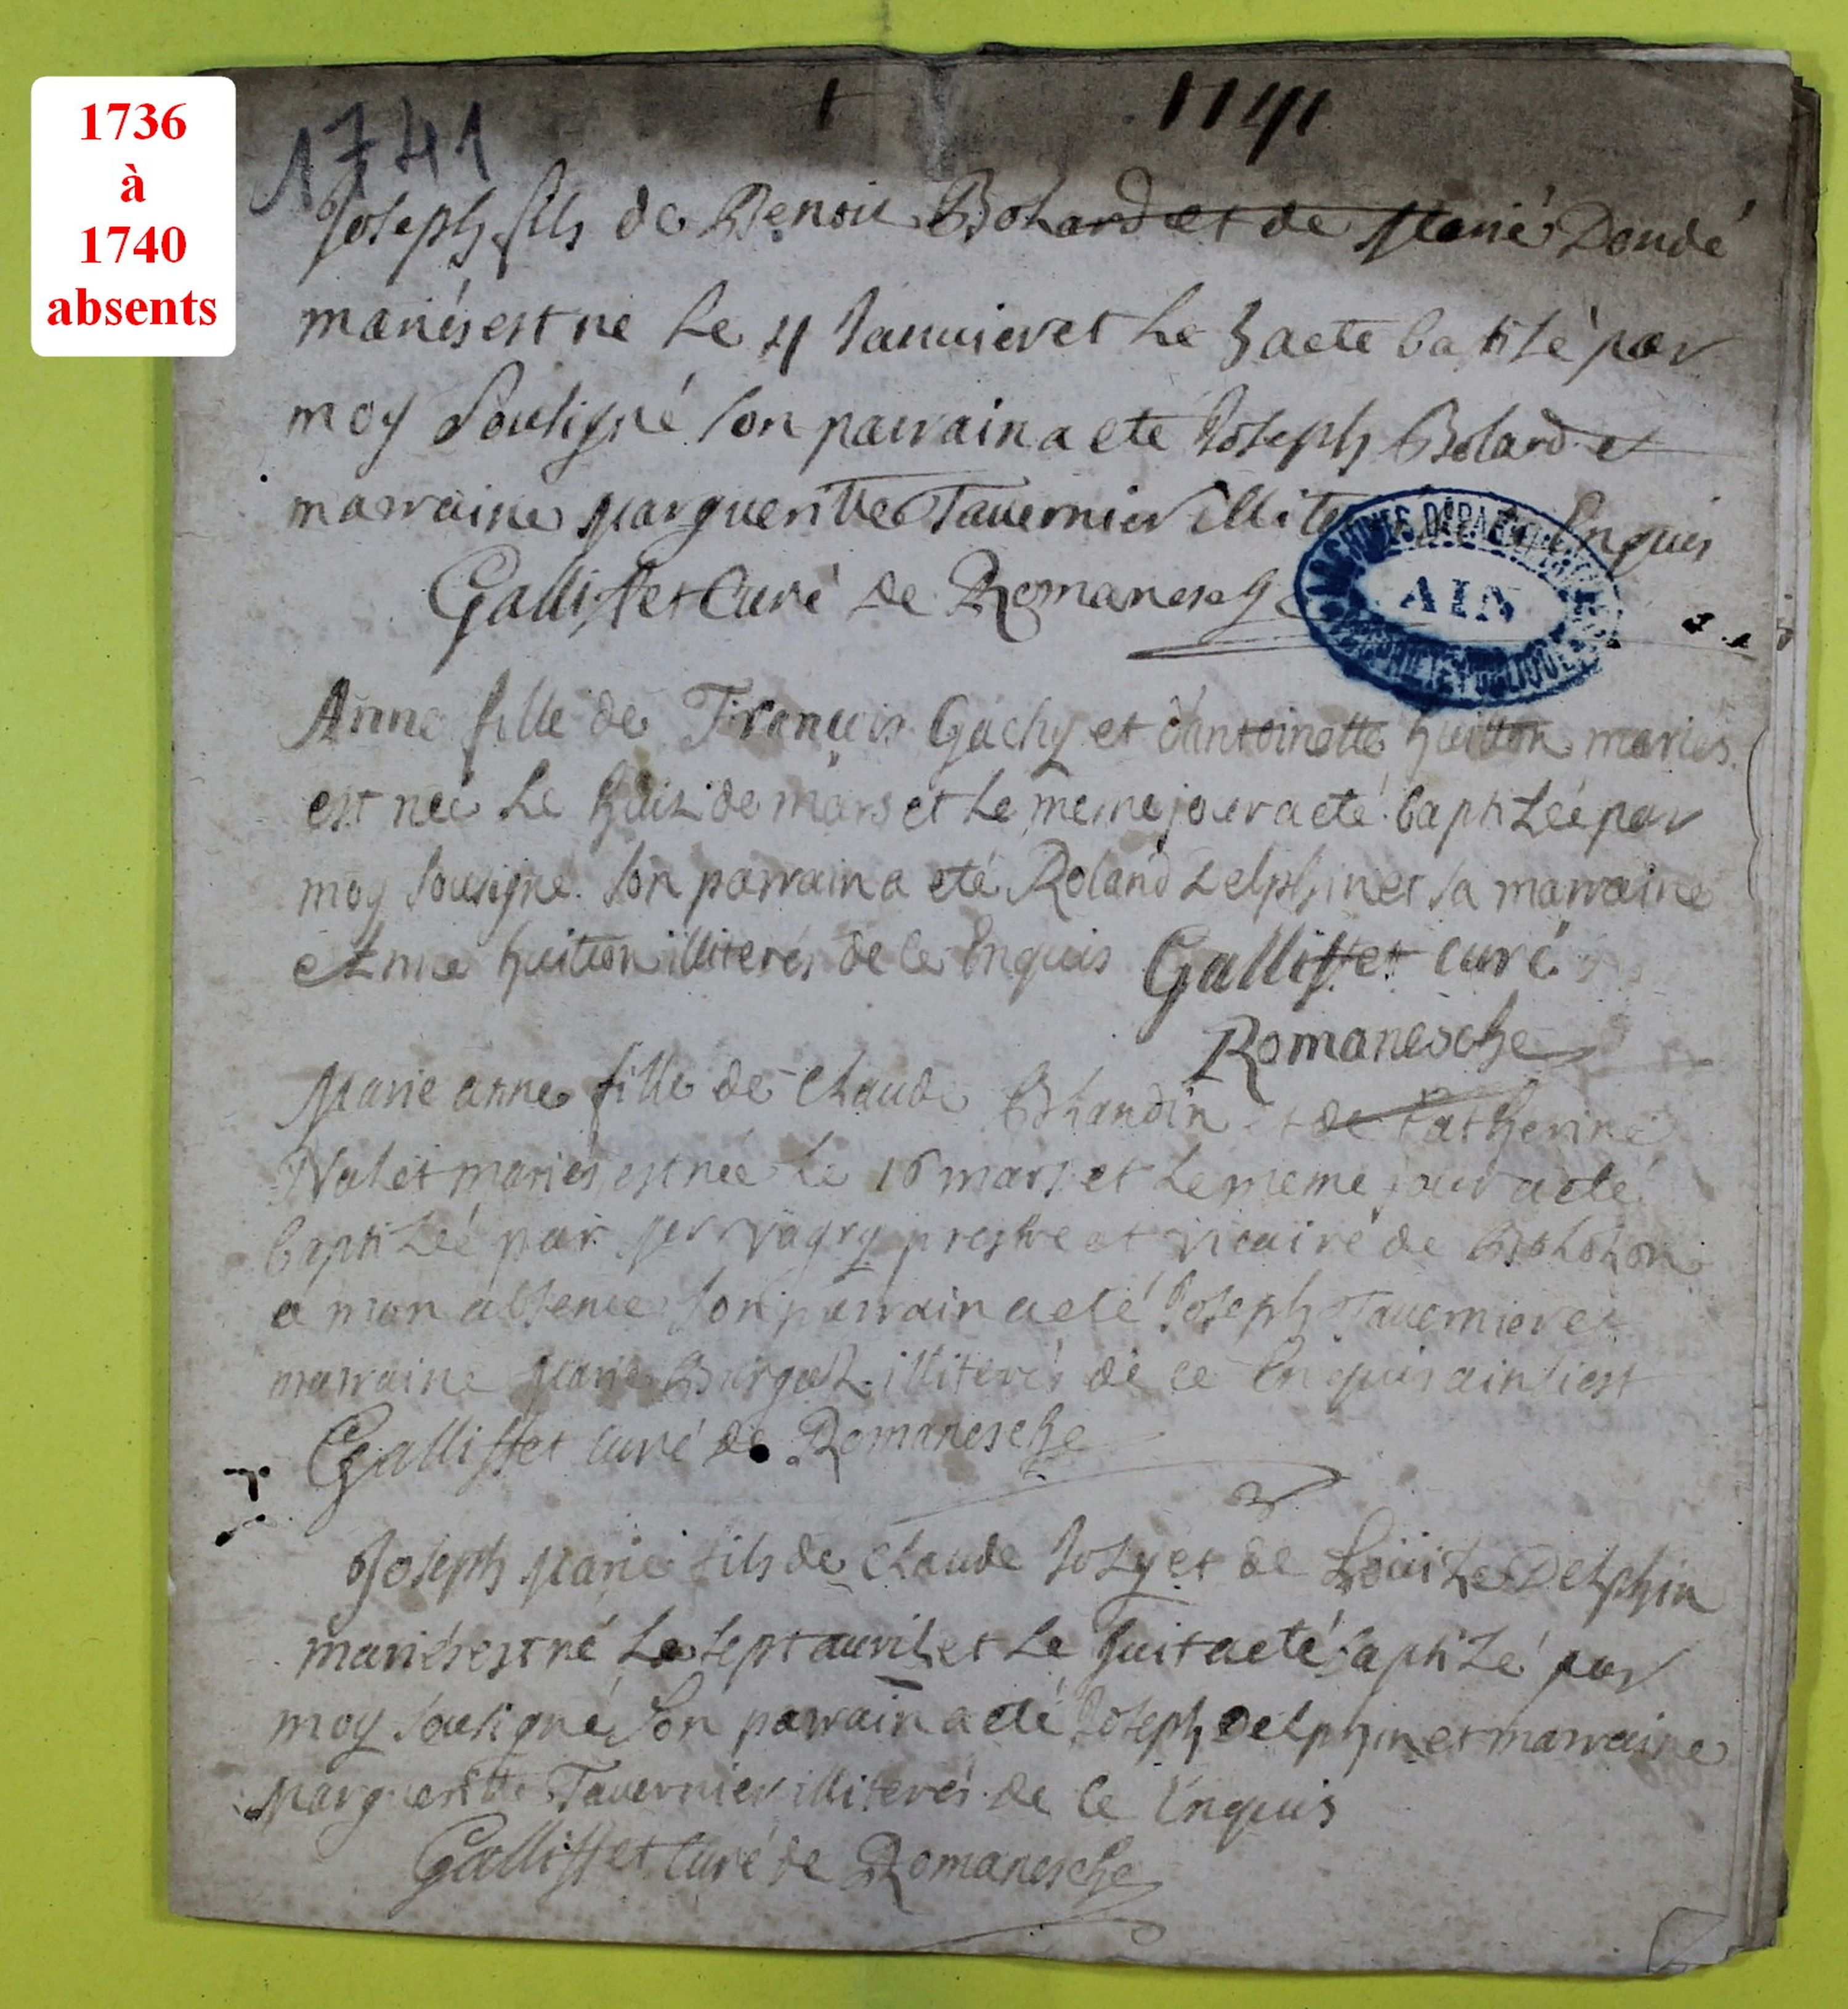 1736
à
1740
absents
1741
1 1741
Joseph fils de Benoit Bohard et de Marie Dondé
mariés est né le 4 Januier et le 5 a eté batisé par
moy Sousigné son parrain a eté Joseph Bolard et
marraine Margueritte Tauernier illiterés de ce Enquis
Galliffet Curé de Romanesche
ARCHIVES DEPARTEMENTALES
AIN
PROPRIETE PUBLIQUE
Anne fille de François Gachy et d'antoinette huitton mariés
est neé le huit de mars et le meme jour a eté baptizeé par
moy sousigné son parrain a eté Roland Delphin et sa marraine
Anne huitton illiterés de ce Enquis Galliffet curé
Romanesche
Marie anne fille de Claude Chandin et de Catherine
mariés est neé le 16 mars et le meme jour a eté
baptizeé par prestre et vicaire de Bohohon
a mon absence son parrain a eté Joseph Tauernier et
marraine Marie illiterés de ce Enquis ainsi est
Galliffet curé de Romanesche
Joseph Marie fils de Claude Joly et de Loüise Delphin
mariés est né le sept auril et le huit a eté baptizé par
moy sousigné son parrain a eté Joseph Delphin et marraine
Margueritte Tauernier illiterés de ce Enquis
Galliffet Curé de Romanesche